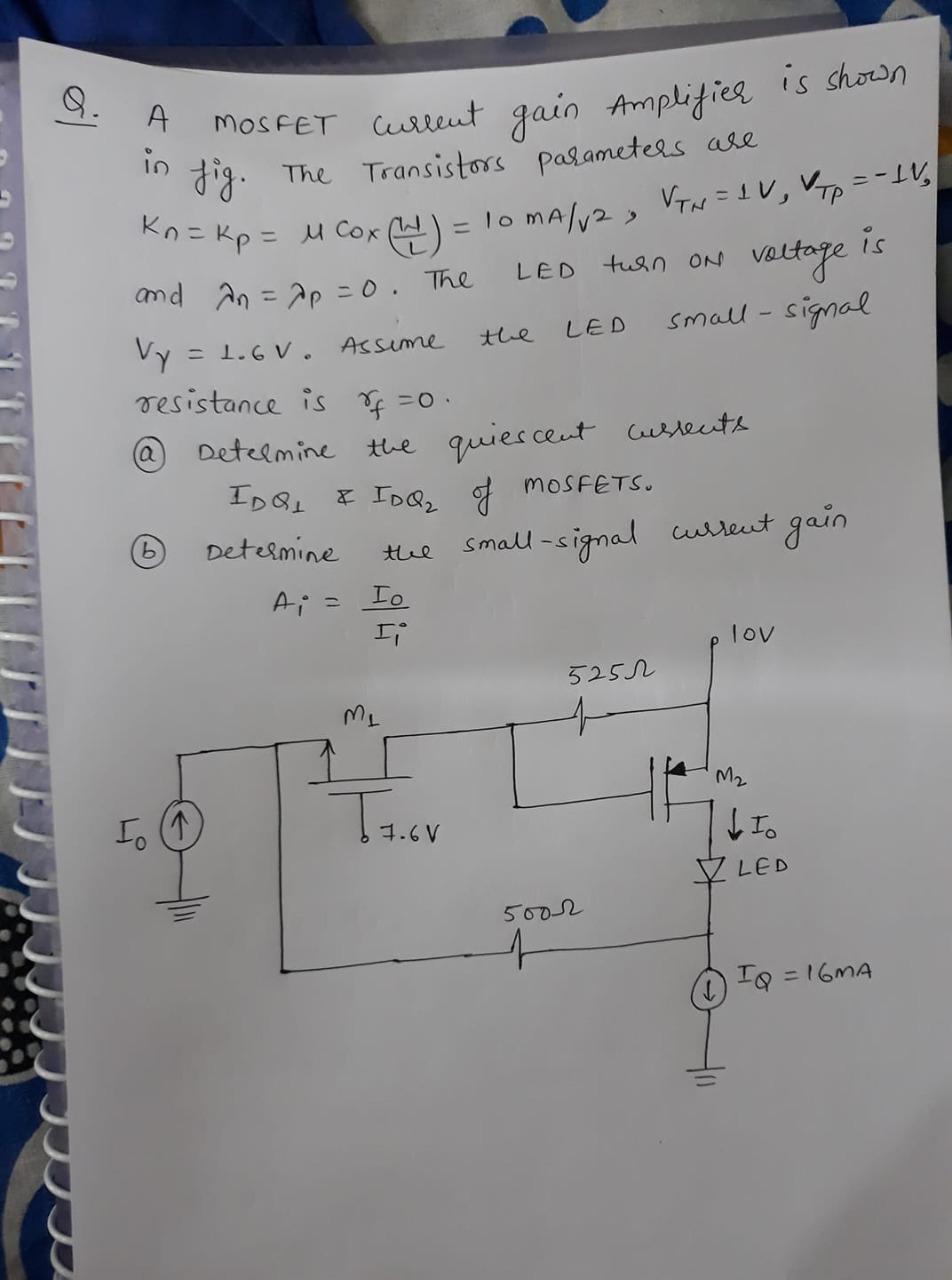 Q. A MOSFET current gain Amplifier is shown
in fig. The Transistors parameters are
Kn = Kp = μ Cox (W/L) = 10 mA/V2, VTN = 1V, VTP = -1V,
and λn = λp = 0. The LED turn ON voltage is
Vγ = 1.6V. Assume the LED small-signal
resistance is rf = 0.
(a) Determine the quiescent currents
IDQ1 & IDQ2 of MOSFETS.
(b) Determine the small-signal current gain
Ai = Io/Ii
10V
525Ω
M1
M2
Io
7.6V
Io
LED
500Ω
IQ = 16mA